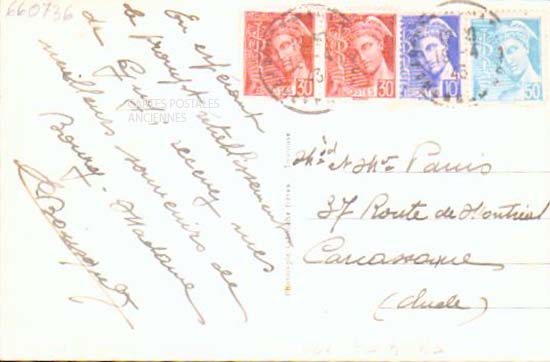 660736
30
30
10
50
POSTES
43
En espérant
le prompt rétablissement
de Guy recevez mes
meilleurs souvenirs de
Bourg-Madame
CARTES POSTALES
ANCIENNES
Md et Mr Pauis
37 Route de Montréal
Carcassonne
(Aude)